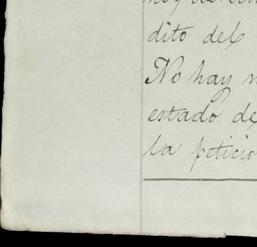 dito del
No hay
estado de
la peticio